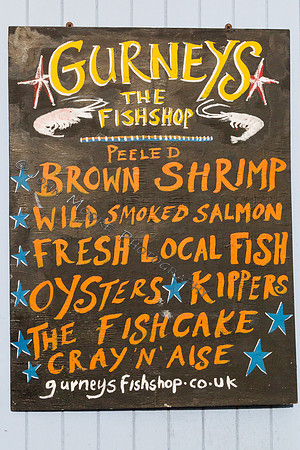 GURNEYS
THE
FISHSHOP
PEELED
BROWN SHRIMP
WILD SMOKED SALMON
FRESH LOCAL FISH
OYSTERS KIPPERS
THE FISHCAKE
CRAY'N'AISE
gurneysfishshop.co.uk